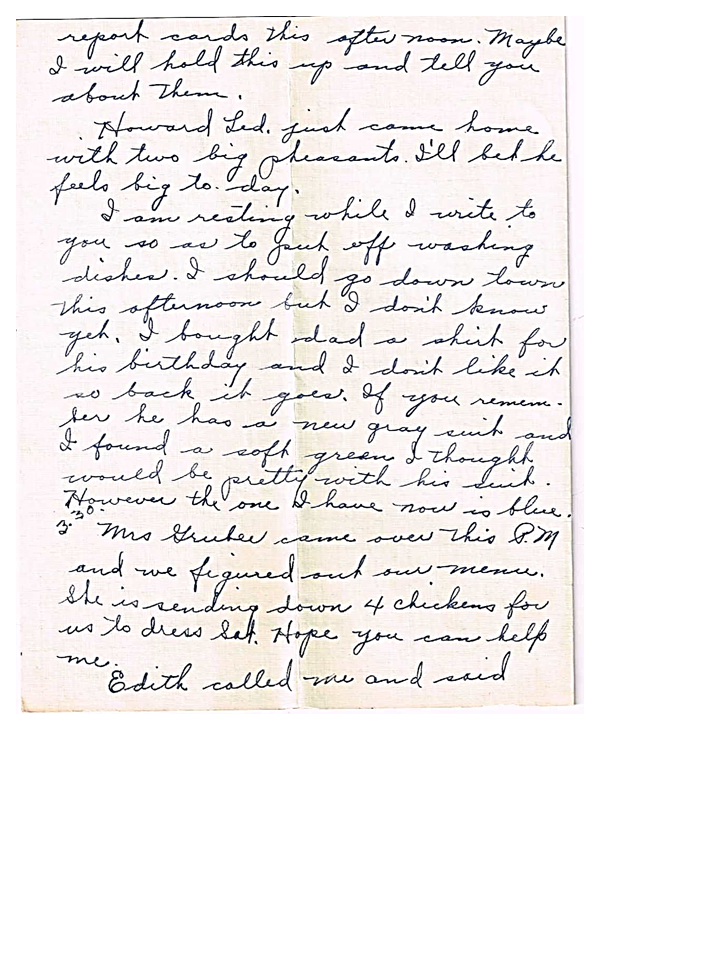 report cards this after noon. Maybe
I will hold this up and tell you
about them.
Howard Led. just came home
with two big pheasants. I'll bet he
feels big to-day.
I am resting while I write to
you so as to put off washing
dishes. I should go down town
this afternoon but I don't know
yet. I bought dad a shirt for
his birthday and I don't like it
so back it goes. If you remem-
ber he has a new gray suit and
I found a soft green I thought
would be pretty with his suit.
However the one I have now is blue.
3:30.
Mrs Gruber came over this P.M
and we figured out our menu.
She is sending down 4 chickens for
us to dress Sat. Hope you can help
me.
Edith called me and said